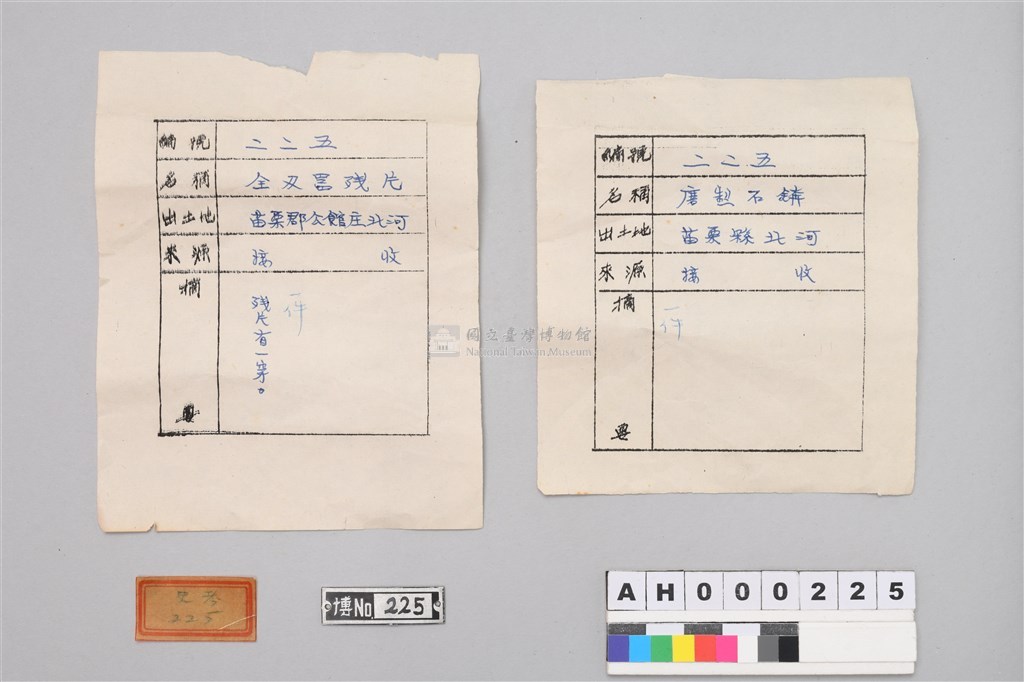 編號 二二五
名稱 全刄器殘片
出土地 苗栗郡公館庄北河
來源 接收
摘要 殘片有一穿。
一件
編號 二二五
名稱 磨製石錛
出土地 苗栗縣北河
來源 接收
摘要 一件
國立臺灣博物館
National Taiwan Museum
史考
225
博No. 225
AH000225